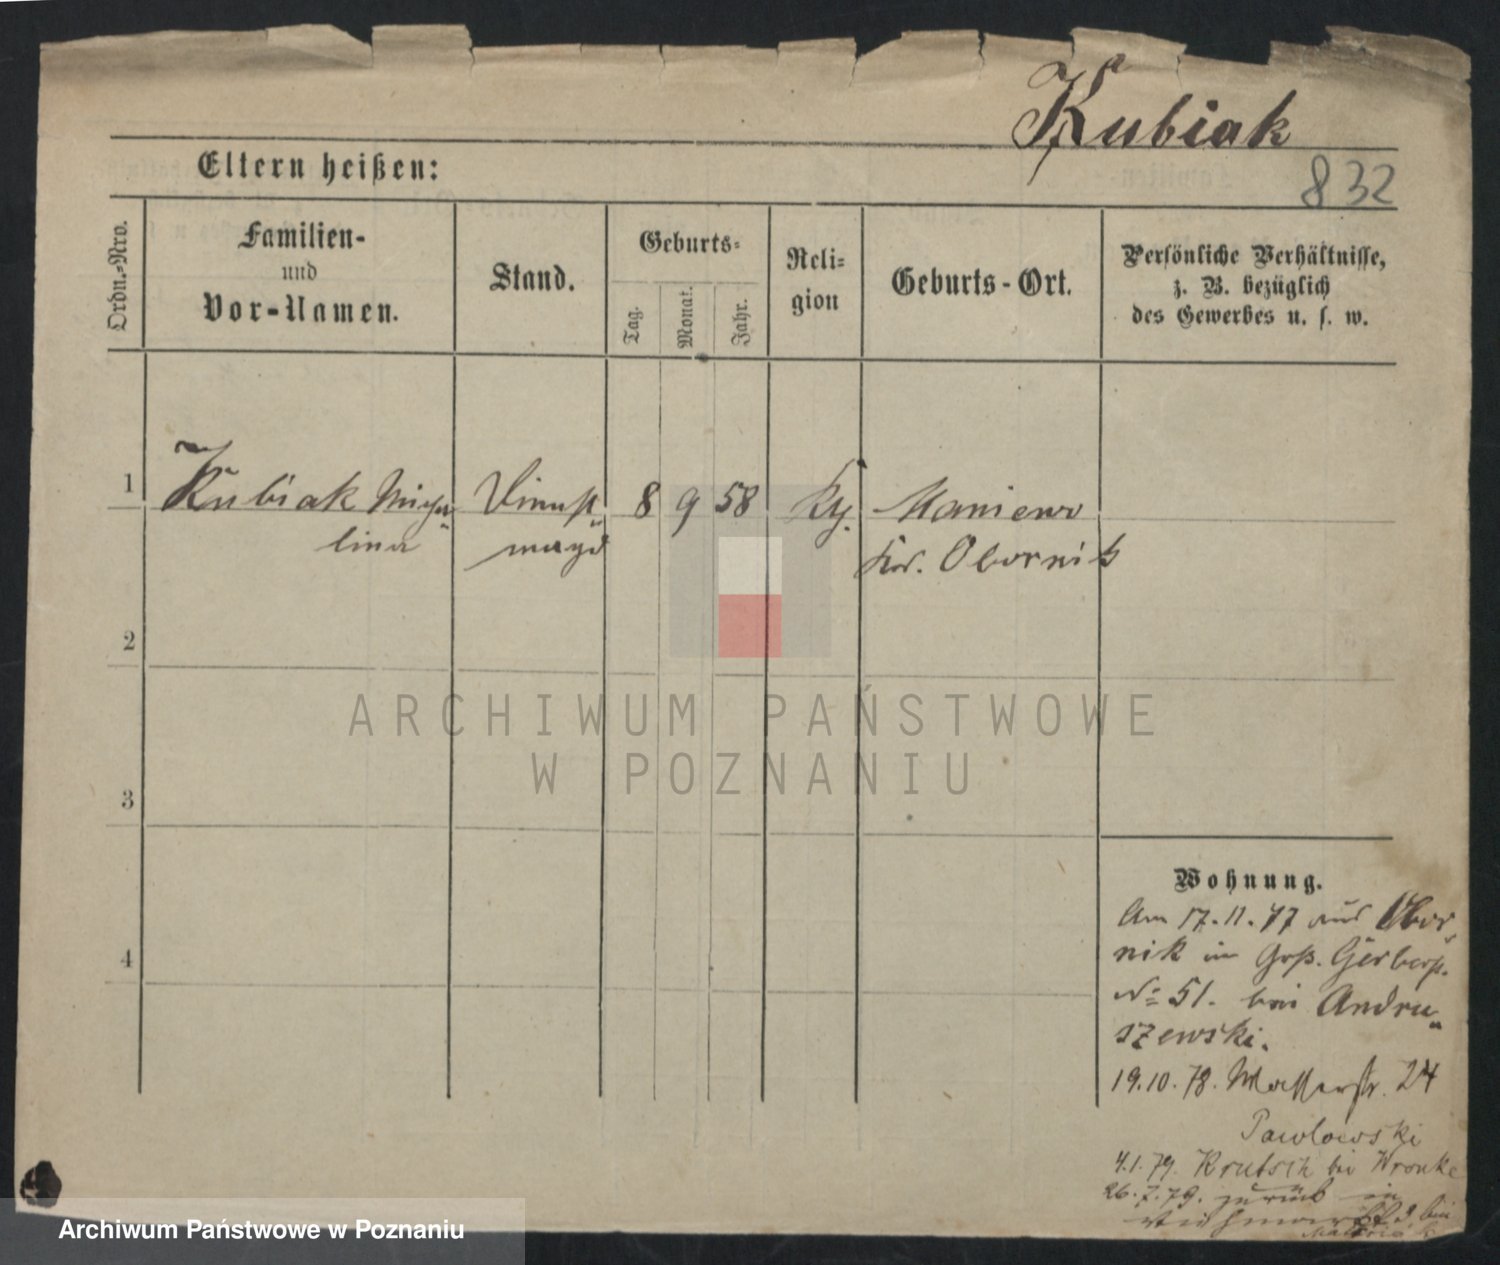 Kubiak
832
Eltern heißen:
Ordn.-Nro.
Familien-
und
Vor-Namen.
Stand.
Geburts-
Tag.
Monat.
Jahr.
Reli-
gion
Geburts-Ort.
Persönliche Verhältnisse,
z. B. bezüglich
des Gewerbes u. s. w.
1 Kubiak Micha„ Dienst„ 8 9 58 Kath. Maniewo
lina magd Kr. Obornik
2
3
4
Wohnung.
Am 17.11.77 aus Obor„
nik in Groß. Gerberstr.
No 51. bei Andru„
szewski.
19.10.78. Wasserstr. 24
Pawlowski
4.1.79. bei Wronke
26.7.79. zurück in
bei
ARCHIWUM PAŃSTWOWE
W POZNANIU
Archiwum Państwowe w Poznaniu